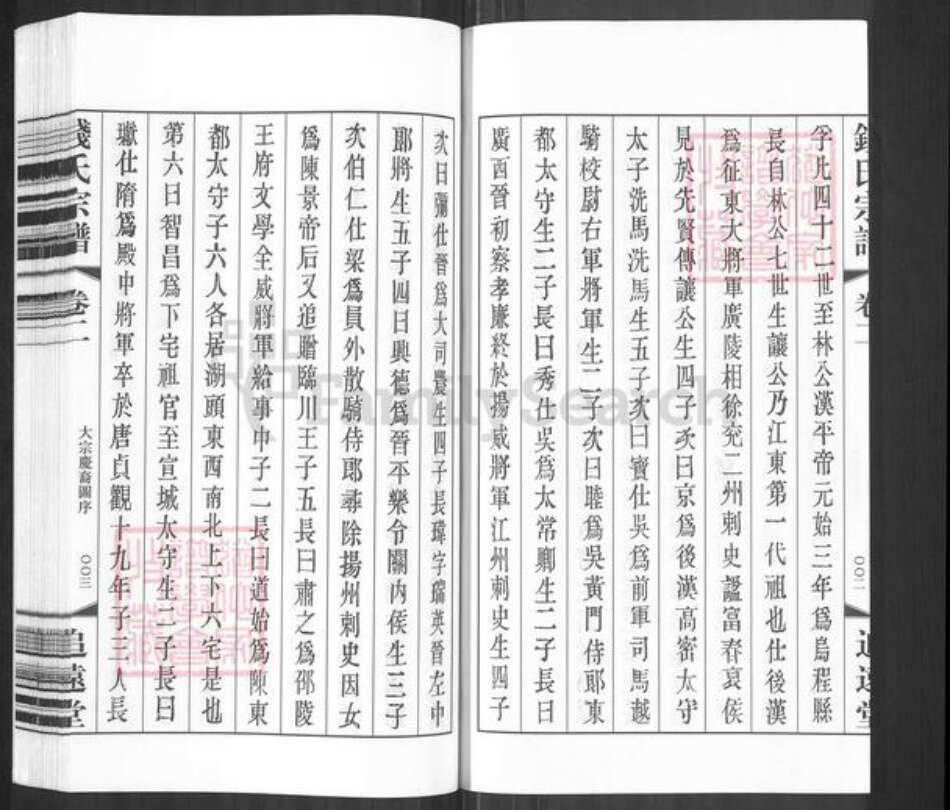 錢氏宗譜 卷二 〇〇二 追遠堂
孚凡四十二世至林公漢平帝元始三年為烏程縣
長自林公七世生讓公乃江東第一代祖也仕後漢
為征東大將軍廣陵相徐兖二州刺史謚富春哀侯
見於先賢傳讓公生四子次曰京為後漢高密太守
太子洗馬洗馬生五子次曰寶仕吳為前軍司馬越
騎校尉右軍將軍生二子次曰睦為吳黃門侍郎東
都太守生二子長曰秀仕吳為太常卿生二子長曰
廣西晉初察孝廉終於揚威將軍江州刺史生四子
次曰彌仕晉為大司農生四子長瑋字瑞英晉左中
郎將生五子四曰興德為晉平樂令關內侯生三子
次伯仁仕梁為員外散騎侍郎尋除揚州刺史因女
為陳景帝后又追贈臨川王子五長曰肅之為邵陵
王府文學全威將軍給事中子二長曰道始為陳東
都太守子六人各居湖頭東西南北上下六宅是也
第六曰智昌為下宅祖官至宣城太守生二子長曰
仕隋為殿中將軍卒於唐貞觀十九年子三人長
錢氏宗譜 卷二 大宗慶裔圖序 〇〇三 追遠堂
FamilySearch